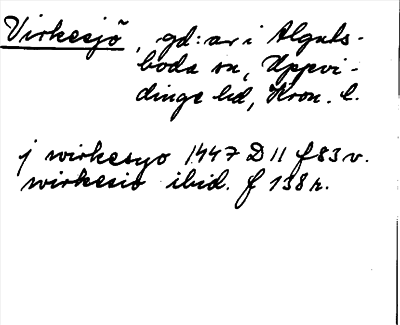 Virkesjö, gd:ar i Alguts-
boda sn, Uppvi-
dinge hd, Kron. l.
j wirkesyo 1447 D 11 f 83 v.
wirkesio ibid. f 138 r.